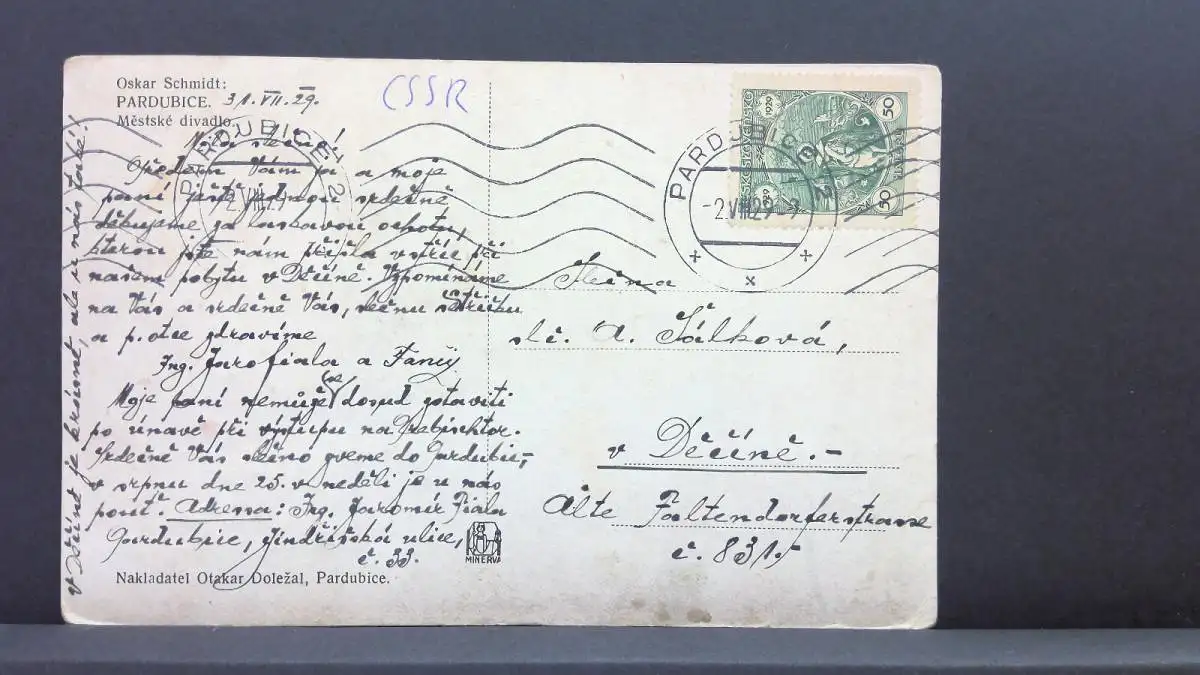 Oskar Schmidt:
PARDUBICE. 31.VII.29.
Městské divadlo.
ČSSR
Milá slečno!
Předem Vám já a moje
paní ještě jednou srdečně
děkujeme za laskavou ochotu,
kterou jste nám přišla vstříc při
našem pobytu v Děčíně. Vzpomínáme
na Vás a srdečně Vás, slečnu
a p. otce zdravíme
Ing. Jaro Fiala a Fanny
Moje paní nemůže se dosud zotaviti
po únavě při výstupu na Prebischtor.
Srdečně Vás slečno zveme do Pardubic,
v srpnu dne 25. v neděli je u nás
pouť. Adressa: Ing. Jaromír Fiala
Pardubice, Jindřišská ulice,
č. 33.
V Děčíně je krásně, ale u nás také!
Nakladatel Otakar Doležal, Pardubice.
MINERVA
PARDUBICE 2
PARDUBICE 2
-2.VIII.29-9
ČESKOSLOVENSKO
1929
929
50
50
sl. A. Šálková,
v Děčíně.-
Alte Faltendorferstrasse
č. 831.-